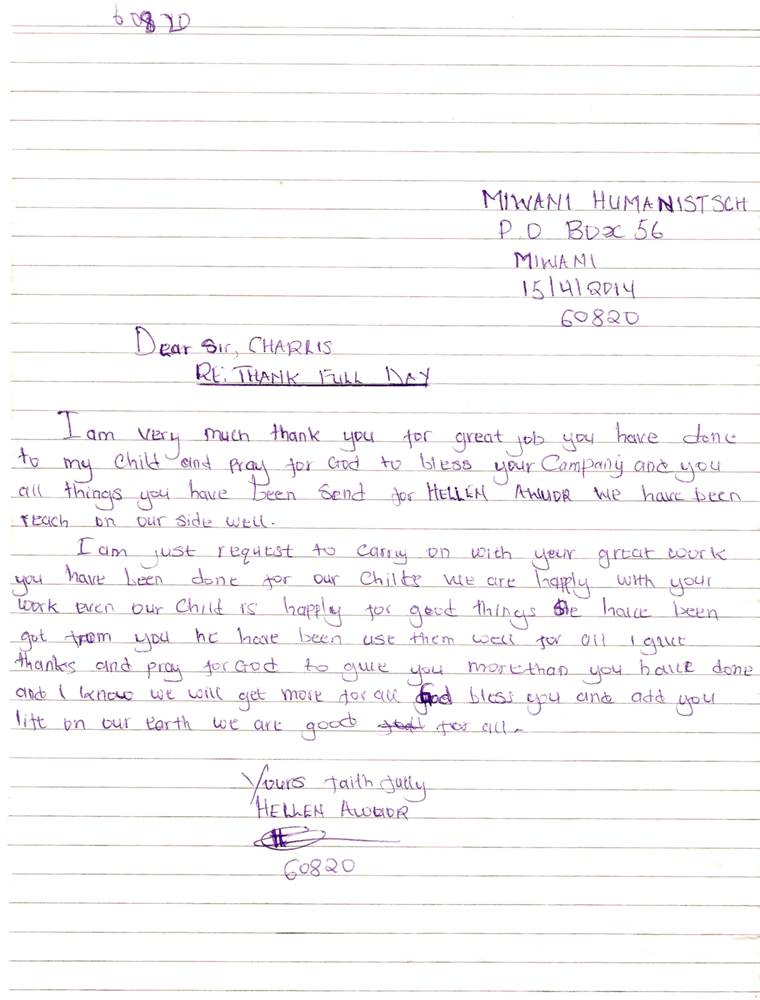 60820
MIWANI HUMANISTSCH
P.O BOX 56
MIWANI
15/4/2014
60820
Dear Sir, CHARRIS
RE: THANK FULL DAY
I am very much thank you for great job you have done
to my child and pray for God to bless your Company and you
all things you have been send for HELLEN AWUOR We have been
reach on our side well.
I am just request to carry on with your great work
you have been done for our Childs we are happly with your
work even our Child is happly for good things he have been
got from you he have been use them well for all I give
thanks and pray for God to give you more than you have done
and I know we will get more for all God bless you and add you
life on our earth we are good for all.
Yours faith fully
HELLEN AWUOR
60820